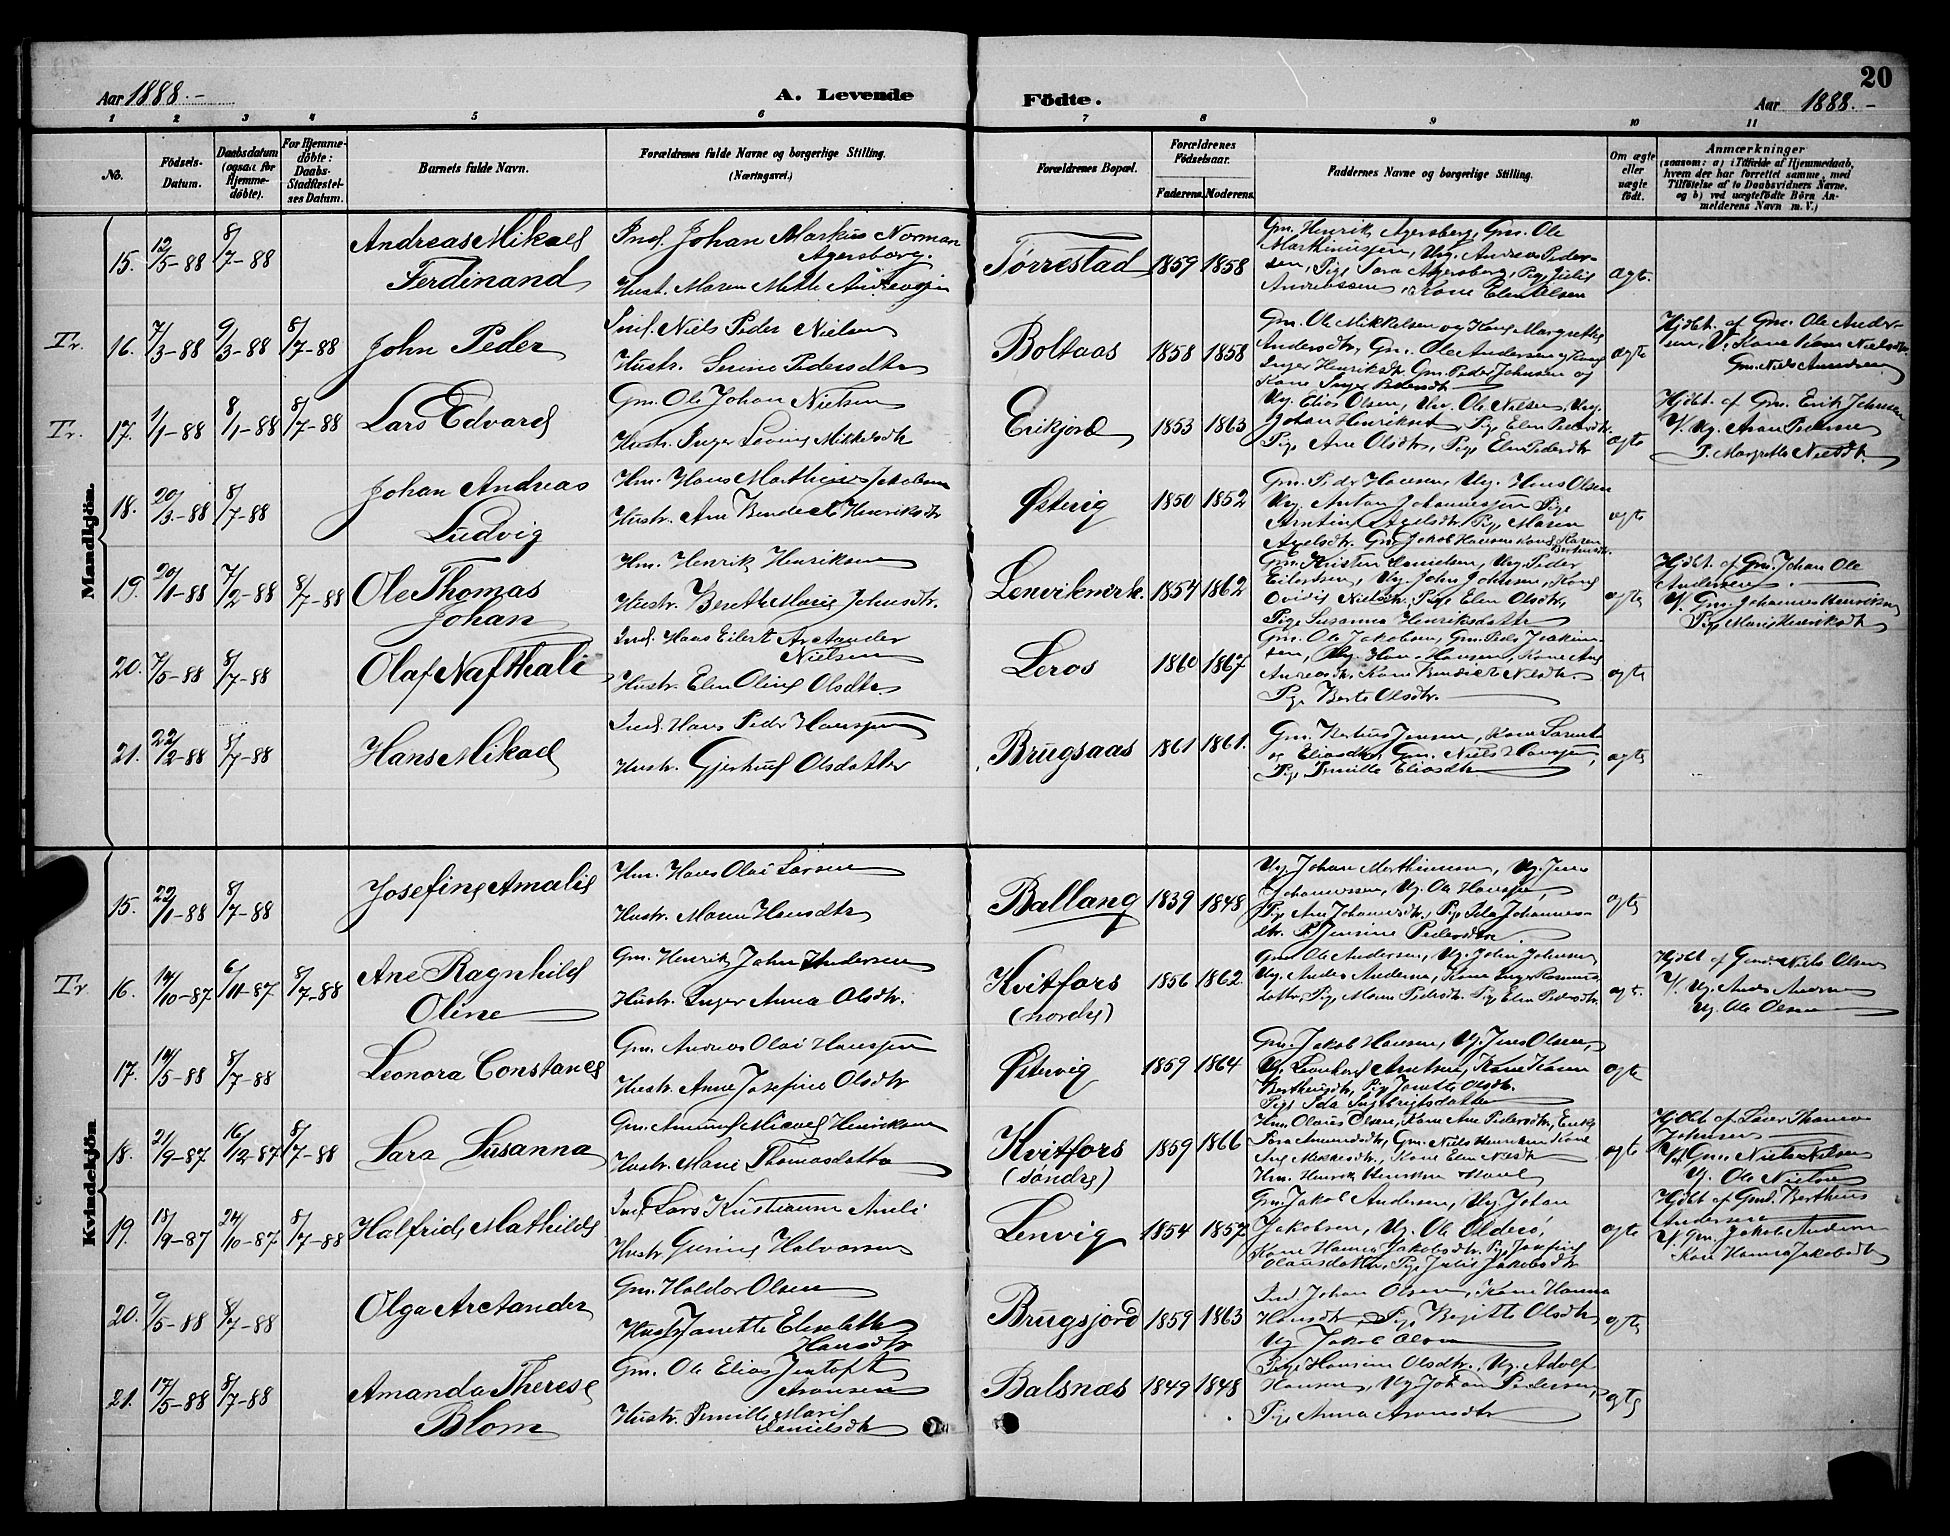 20
Aar 1888.-
A. Levende Födte.
Aar 1888.-
1 2 3 4 5 6 7 8 9 10 11
No.
Födsels-Datum.
Daabsdatum (ogsaa: for Hjemme-döbte).
For Hjemme-döbte: Daabs-Stadfæstel-ses Datum.
Barnets fulde Navn.
Forældrenes fulde Navne og borgerlige Stilling. (Næringsvei.)
Forældrenes Bopæl.
Forældrenes Födselsaar.
Faderens. Moderens.
Faddernes Navne og borgerlige Stilling.
Om ægte eller uægte födt.
Anmærkninger
(saasom: a) i Tilfælde af Hjemmedaab, hvem der har forrettet samme, med Tilföielse af to Daabsvidners Navne, og b) ved uægtefödte Börn An-melderens Navn m. V.)
Mandkjön.
15. 12/5-88 8/7-88 Andreas Mikael Ferdinand
Ind. Johan Markus Norman Agersborg.
Hust. Maren Mette
Tørrestad 1859 1858
Gm. Henrik Agersborg, Gm. Ole
Martinussen, Ug. Andreas Peder-
sen, Pige Sara Agersborg, Pige Julie
Andreassen, Kone Elen Olsen
ægte.
Tr. 16. 7/3-88 9/3-88 8/7-88 John Peder
Ind. Niels Peder Nielsen
Hustr. Serine Pedersdtr
Boltaas 1858 1858
Gm. Ole Mikkelsen og Kone Margrethe
Andersdtr, Gm. Ole Andersen og Kone
Inger Henriksdtr, Gm. Peder Johnsen og
Kone Inger
ægte
Hjdbt. af Gm. Ole Ander-
sen, V. Kone Nielsdtr
Gm. Niels Amundsen
Tr. 17. 1/1-88 8/1-88 8/7-88 Lars Edvard
Gm. Ole Johan Nielsen
Hustr. Inger Lovise Mikkelsdtr
Erikjord 1853 1863
Ug. Elias Olsen, Ug. Ole Nielsen, Ug.
Johan Henriksen, Pige Elen Pedersdtr.
Pige Ane Olsdtr, Pige Elen Pedersdtr
ægte
Hjdbt. af Gm. Erik Johnsen
V. Ug. Aron Pedersen
P. Margrethe Nielsdtr.
18. 20/3-88 8/7-88 Johan Andreas Ludvig
Hm. Hans Mathias Jakobsen
Hustr. Ane Bendikte Henriksdtr
Østervig 1850 1852
Gm. Peder Hansen, Ug. Hans Olsen
Ug. Anton Johannessen Pige
Arntine Axelsdtr, Pige Maren
Axelsdtr. Gm. Jakob Hansen Kone Karen
Berthusdtr.
ægte
19. 20/1-88 7/2-88 8/7-88 Ole Thomas Johan
Hm. Henrik Henriksen
Hustr. Berethe Marie Johnsdtr.
Lenvikmærk. 1854 1862
Gm. Kristen Danielsen, Ug. Peder
Eilertsen, Ug. John Johnsen, Kone
Ovidie Nielsdtr, Pige Elen Olsdtr,
Pige Susanna Henriksdatter
ægte
Hjdbt. af Gm. Johan Ole
Andersen
V. Gm. Johannes Henriksen
Pige Marie Henriksdtr
20. 7/5-88 8/7-88 Olaf Nafthali
Ind. Hans Eilert Arctander Nielsen
Hustr. Elen Oline Olsdtr.
Leros 1860 1867
Gm. Ole Jakobsen, Gm. Peder Joakim-
sen, Ug. Hans Hansen, Kone Ane
Andreasdtr, Kone Bendikte Nielsdtr.
Pige Berte Olsdtr.
ægte
21. 22/2-88 8/7-88 Hans Mikael
Ind. Hans Peder Hanssen
Hustr. Gjertrud Olsdatter
Brugsaas 1861 1861.
Gm. Bertius Jensen, Kone
Eliasdtr, Gm. Niels Hanssen,
Pige Pernille Eliasdtr
ægte
Kvindekjön.
15. 22/1-88 8/7-88 Josefine Amalie
Hm. Hans Olai Larsen
Hustr. Maren Hansdtr
Ballang 1839 1848
Ug. Johan Marthinussen, Ug. Jens
Johannessen, Ug. Ole Hanssen,
Pige Ane Johannesdtr, Pige Ida Johannes-
dtr. P. Jensine Pedersdtr
ægte
Tr. 16. 14/10-87 6/11-87 8/7-88 Ane Ragnhild Oline
Gm. Henrik John Andersen
Hustr. Inger Anna Olsdtr.
Kvitfors (nordre) 1856 1862
Gm. Ole Andersen, Ug. John Johnsen
Ug. Anders Andersen, Kone Inger Rasmus-
datter, Pige Maren Pedersdtr. Pige Elen Pedersdtr.
ægt.
Hjdbt af Niels Olsen
V. Ug. Anders Andersen
Ug. Ole Olsen
17. 14/5-88 8/7-88 Leonora Constance
Gm. Andreas Olai Hanssen
Hustr. Anne Josefine Olsdtr
Østervig 1859 1864
Gm. Jakob Hansen, Ug. Jens Olsen,
Ug. Leonhard Arntsen, Kone Karen
Berthusdtr, Pige Janette Olsdtr.
Pige Ida Ingebrigtsdatter
ægte
18. 21/9-87 16/12-87 8/7-88 Sara Susanna
Gm. Amund Mikael Henriksen
Hustr. Marie Thomasdatter
Kvitfors (søndre) 1859 1866
Hm. Olaus Olsen, Kone Ane Pedersdtr, Enke
Sara Amundsdtr, Gm. Niels Henriksen Kone
Mikkelsdtr, Kone Elen Nielsdtr
Hm. Henrik Henriksen
ægte
Hjdbt af Thomas
Johnsen
V. Gm. Niels Nielsen
Ug. Ole Nielsen
19. 18/9-87 24/10-87 8/7-88 Halfrid Mathilde
Ind. Lars Kristiansen
Hustr. Gurine Halvorsen
Lenvig 1854 1857
Gm. Jakob Andersen, Ug. Johan
Jakobsen, Ug. Ole Olderø,
Kone Hanna Jakobsdtr, Pige Josefine
Olausdatter, Pige Julie Jakobsdtr
ægte
Hjdbt af Gmd. Bertheus
Andersen
V. Gm. Jakob Andersen
Kone Hanna Jakobsdtr
20. 9/5-88 8/7-88 Olga Arctander
Gm. Haldor Olsen
Hustr. Janette Elisabeth Hansdtr
Brugsjord 1859 1863
Ind. Johan Olsen, Kone Hanna
Hansdtr, Pige Birgitte Olsdtr
Ug. Jakob Olsen
ægte
21. 17/5-88 8/7-88 Amanda Therese Blom
Gm. Ole Elias Jentoft Aronsen
Hustr. Pernille Marie Danielsdtr
Balsnæs 1849 1848
Pige Hansine Olsdtr. Ug. Adolf
Hansen, Ug. Johan Pedersen,
Pige Anna Aronsdtr
ægte